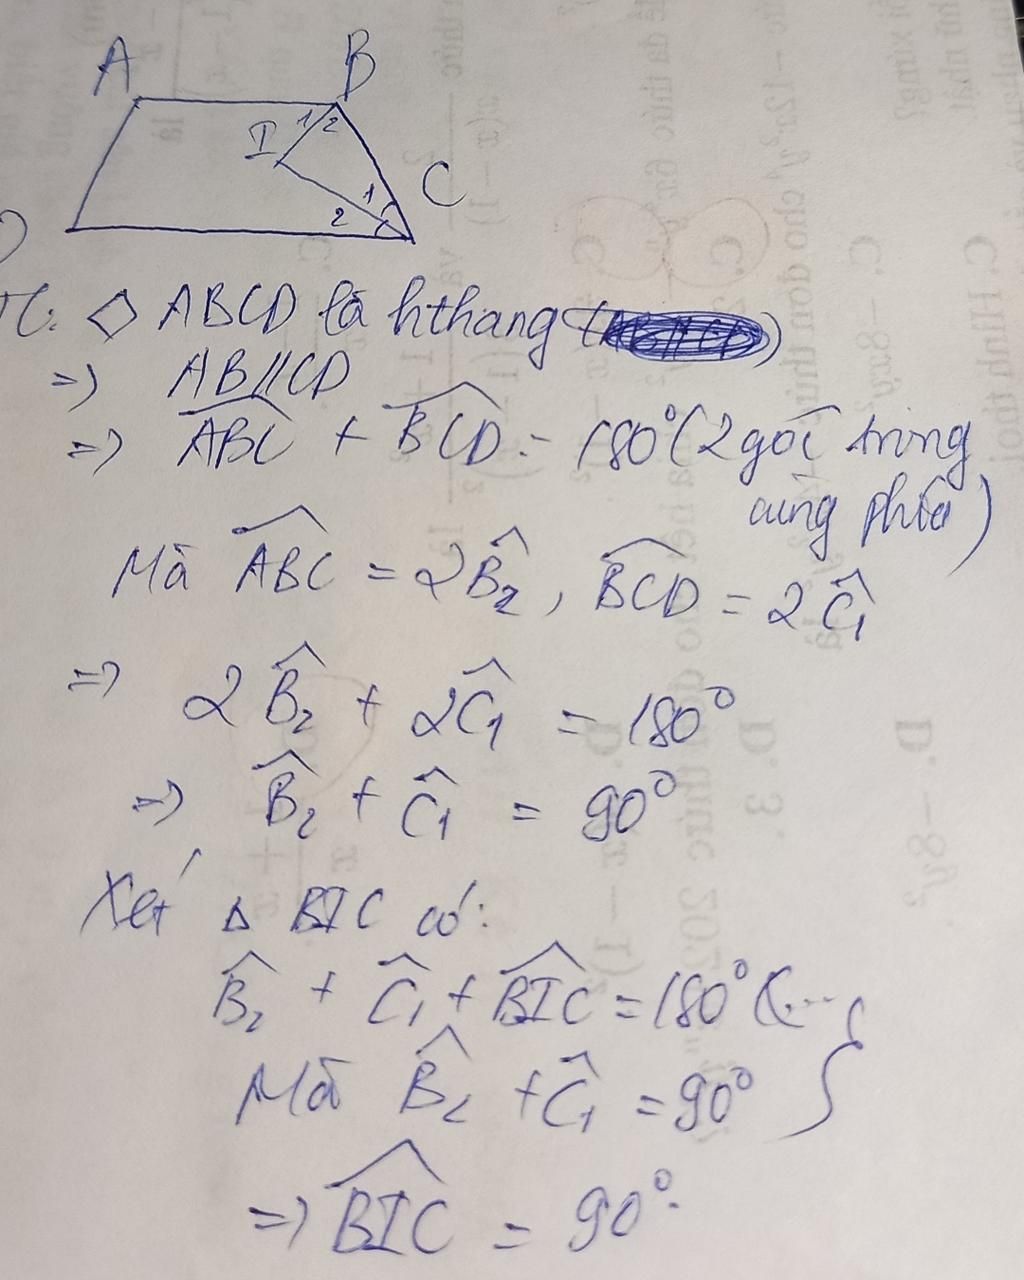 A B
1 2
I
1 C
2
◇ ABCD là hthang
=> AB//CD
=> \widehat{ABC} + \widehat{BCD} = 180° (2 góc trong
cùng phía)
Mà \widehat{ABC} = 2\widehat{B}₂, \widehat{BCD} = 2\widehat{C}₁
=> 2\widehat{B}₂ + 2\widehat{C}₁ = 180°
=> \widehat{B}₂ + \widehat{C}₁ = 90°
Xét Δ BIC có:
\widehat{B}₂ + \widehat{C}₁ + \widehat{BIC} = 180° (...
Mà \widehat{B}₂ + \widehat{C}₁ = 90° }
=> \widehat{BIC} = 90°.